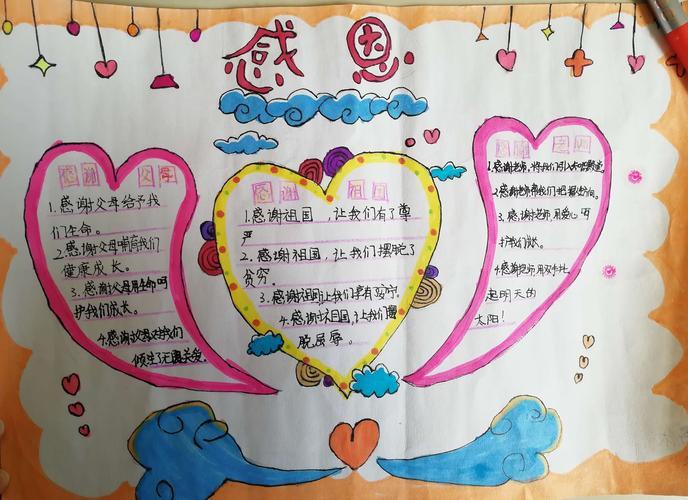 感恩
感谢 父母
1.感谢父母给予我
们生命。
2.感谢父母哺育我们
健康成长。
3.感谢父母用生命呵
护我们成长。
4.感谢父母对我们
倾注了无限关爱。
感谢 祖国
1.感谢祖国,让我们有了尊
严
2.感谢祖国,让我们摆脱了
贫穷。
3.感谢祖国让我们享有安宁
4.感谢祖国,让我们摆
脱屈辱。
1.感谢老师,将我们引入知识殿堂
2.感谢老师帮我们把握方向。
3.感谢老师,用爱心呵
护我们成长。
4.感谢老师用双手托
起明天的
太阳!